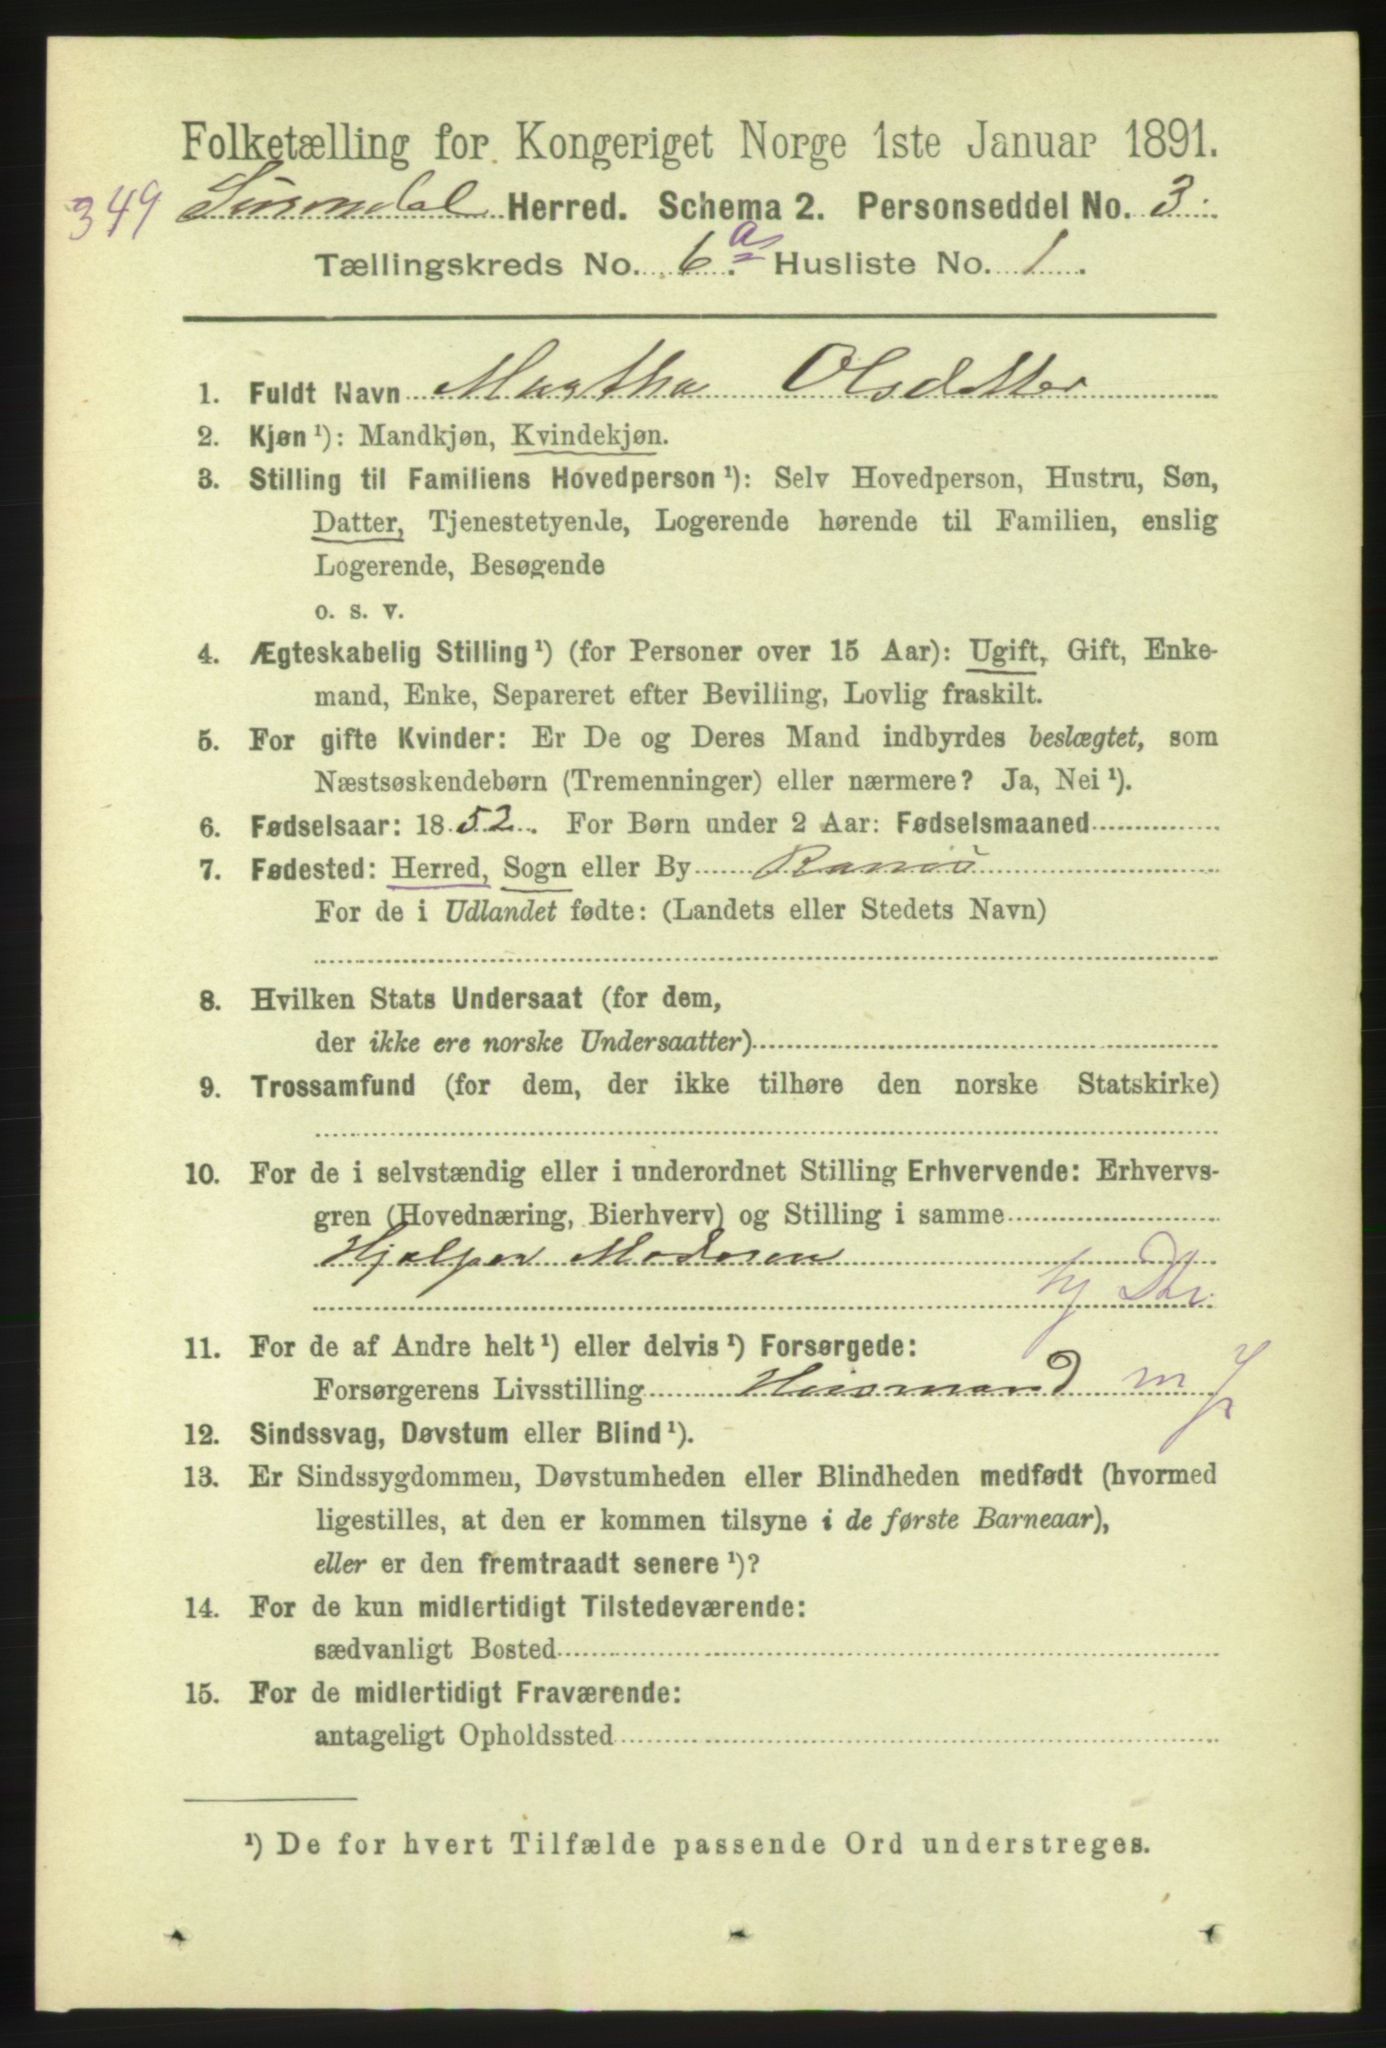 Folketælling for Kongeriget Norge 1ste Januar 1891.
349 Surendal Herred. Schema 2. Personseddel No. 3
Tællingskreds No. 6a Husliste No. 1
1. Fuldt Navn Martha Olsdatter
2. Kjøn ¹): Mandkjøn, Kvindekjøn.
3. Stilling til Familiens Hovedperson ¹): Selv Hovedperson, Hustru, Søn,
Datter, Tjenestetyende, Logerende hørende til Familien, enslig
Logerende, Besøgende
o. s. v.
4. Ægteskabelig Stilling ¹) (for Personer over 15 Aar): Ugift, Gift, Enke-
mand, Enke, Separeret efter Bevilling, Lovlig fraskilt.
5. For gifte Kvinder: Er De og Deres Mand indbyrdes beslægtet, som
Næstsøskendebørn (Tremenninger) eller nærmere? Ja, Nei ¹).
6. Fødselsaar: 1852. For Børn under 2 Aar: Fødselsmaaned
7. Fødested: Herred, Sogn eller By
For de i Udlandet fødte: (Landets eller Stedets Navn)
8. Hvilken Stats Undersaat (for dem,
der ikke ere norske Undersaatter)
9. Trossamfund (for dem, der ikke tilhøre den norske Statskirke)
10. For de i selvstændig eller i underordnet Stilling Erhvervende: Erhvervs-
gren (Hovednæring, Bierhverv) og Stilling i samme
Hjælper Moderen
hj Dtr.
11. For de af Andre helt ¹) eller delvis ¹) Forsørgede:
Forsørgerens Livsstilling Husmand m J
12. Sindssvag, Døvstum eller Blind ¹).
13. Er Sindssygdommen, Døvstumheden eller Blindheden medfødt (hvormed
ligestilles, at den er kommen tilsyne i de første Barneaar),
eller er den fremtraadt senere ¹)?
14. For de kun midlertidigt Tilstedeværende:
sædvanligt Bosted
15. For de midlertidigt Fraværende:
antageligt Opholdssted
¹) De for hvert Tilfælde passende Ord understreges.